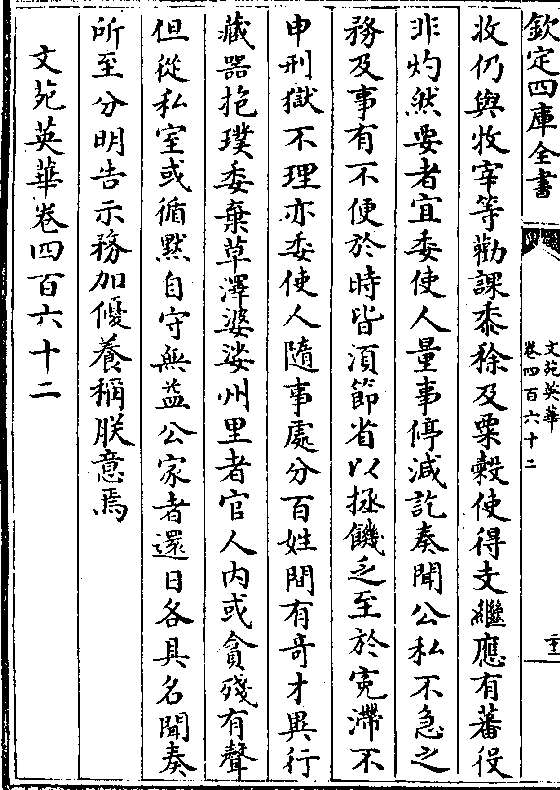 欽定四庫全書
文苑英華
卷四百六十二
牧仍與牧宰等勸課黍稌及粟榖使得支繼應有蕃役
非灼然要者宜委使人量事停減訖奏聞公私不急之
務及事有不便於時皆湏節省以拯饑乏至於寃滯不
申刑獄不理亦委使人隨事處分百姓間有竒才異行
藏器抱璞委棄草澤婆娑州里者官人内或貪殘有聲
但從私室或循黙自守無益公家者還日各具名聞奏
所至分明告示務加優養稱朕意焉
文苑英華卷四百六十二